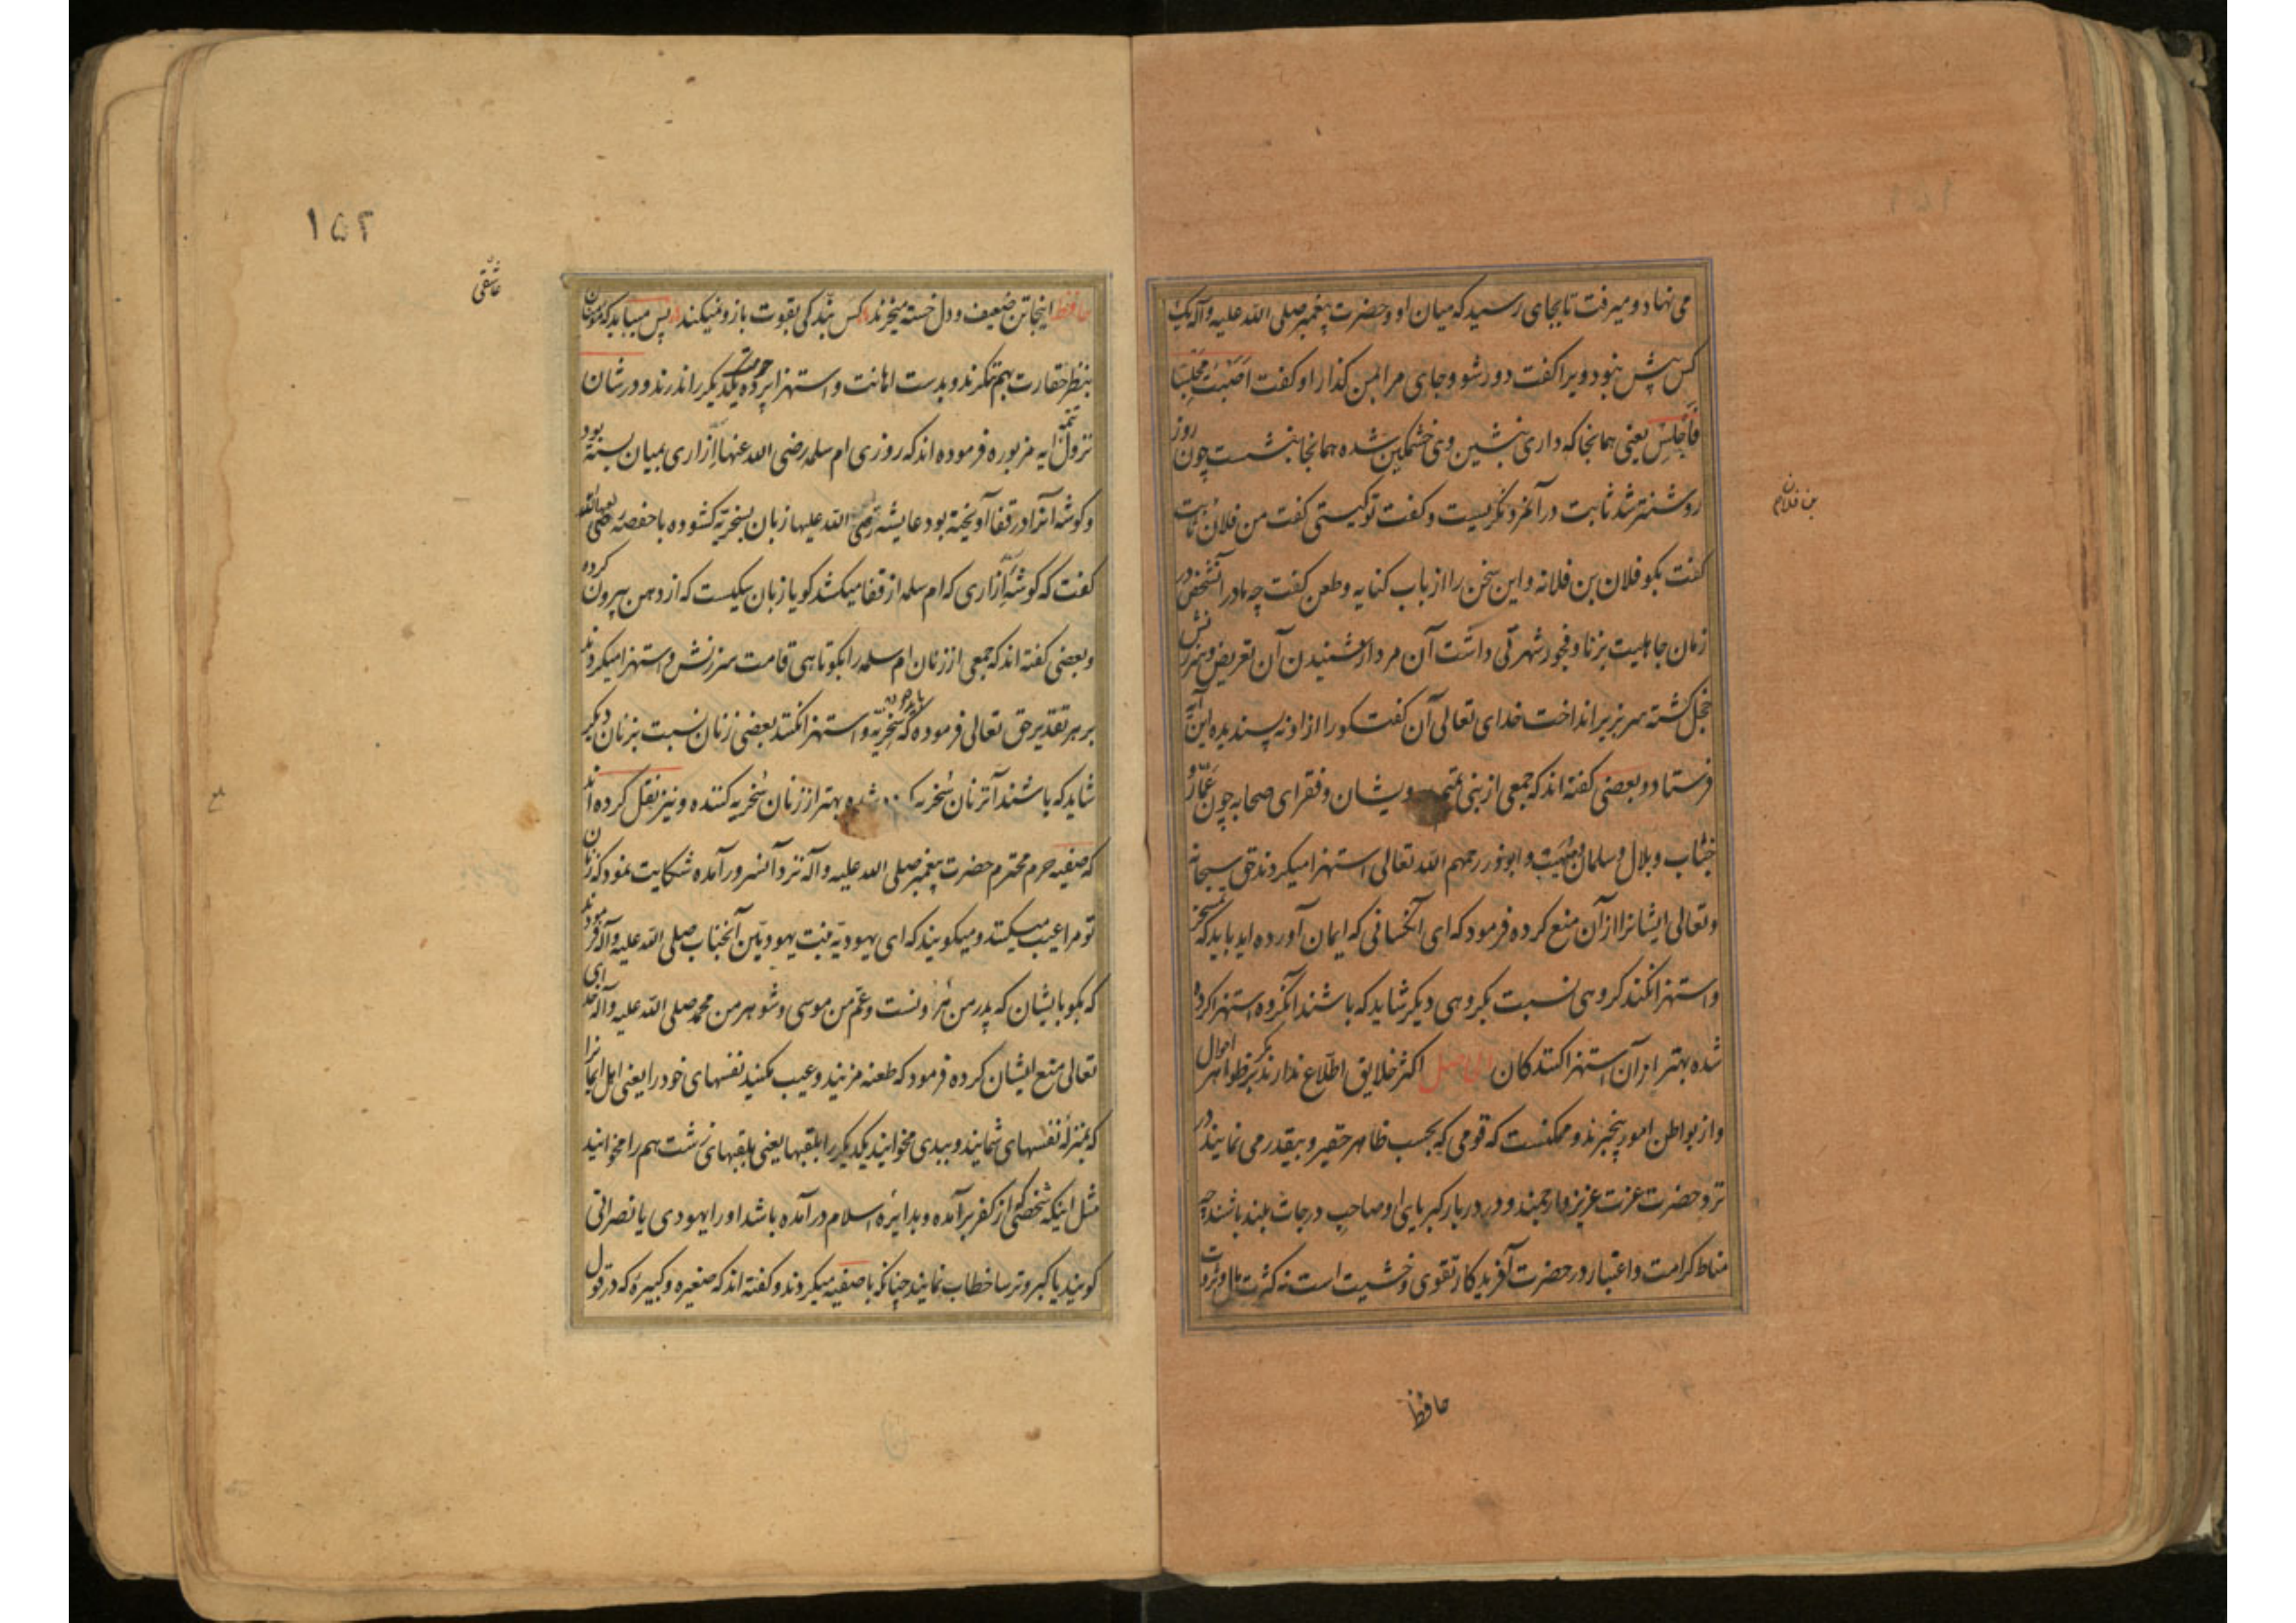 می نهاد و میرفت تا بجای رسید که میان او و حضرت پیغمبر صلی الله علیه و آله یک
کس بیش نبود ویرا کفت دور شو و جای مرا بمن کذار او کفت اَصَبْتَ مَجْلِسًا
فَاجْلِسْ یعنی همانجا که داری بنشین وی خشمکین شده همانجا بنشست چون روز
روشنتر شد ثابت در آنمرد نکریست و کفت تو کیستی کفت من فلان ثابت
بن فلانم
کفت بکو فلان بن فلانه و این سخن را از باب کنایه و طعن کفت چه مادر آنشخص در
زمان جاهلیت بزنا و فجور شهرتی داشت آن مرد از شنیدن آن تعریض و سرزنش
خجل کشته سر بزیر انداخت خدای تعالی آن کفت کو را از او نه پسندیده این آیه
فرستاد و بعضی کفته اند که جمعی از بنی تمیم درویشان و فقرای صحابه چون عمّار و
خبّاب و بلال و سلمان و صُهَیْب و ابوذر رحمهم الله تعالی استهزا میکردند حق سبحانه
و تعالی ایشانرا از آن منع کرده فرمود که ای آنکسانی که ایمان آورده اید باید که تمسخر
و استهزا نکند کروهی نسبت بکروهی دیکر شاید که باشند آنکروه استهزا کرده
شده بهتر از آن استهزا کنندکان الحاصل اکثر خلایق اطلاع ندارند مکر بر ظواهر احوال
و از بواطن امور بیخبرند و ممکنست که قومی که بحسب ظاهر حقیر و بیقدر می نمایند در
نزد حضرت عزت عزیز و ارجمند و در دربار کبریای او صاحب درجات بلند باشند چه
مناط کرامت و اعتبار در حضرت آفریدکار تقوی و خشیت است نه کثرت مال و ثروت
حافظ
۱۵۲
عاشقی
حافظ اینجا تن ضعیف و دل خسته میخرند کس بندکی بقوت بازو نمیکند پس میباید که مؤمنان
بنظر حقارت بهم ننکرند و بدست اهانت و استهزا پرده حرمت یکدیکر را ندرند و در شان
نزول تتمه آیه مزبوره فرموده اند که روزی ام سلمه رضی الله عنها ازاری بمیان بسته بود
و کوشه آنرا در قفا آویخته بود عایشه رضی الله علیها زبان بسخریه کشوده با حفصه رضی الله عنها
کفت که کوشه ازاری که ام سلمه از قفا میکشد کویا زبان سکیست که از دهن بیرون کرده
و بعضی کفته اند که جمعی از زنان ام سلمه را بکوتاهی قامت سرزنش و استهزا میکردند
بر هر تقدیر حق تعالی فرموده که باید سخریّه و استهزا نکنند بعضی زنان نسبت بزنان دیکر
شاید که باشند آنزنان سُخریه کرده شده بهتر از زنان سُخریه کننده و نیز نقل کرده اند
که صفیه حرم محترم حضرت پیغمبر صلی الله علیه و آله نزد آنسرور آمده شکایت نمود که زنان
تو مرا عیب میکنند و میکویند که ای یهودیّه بنت یهودیّین آنجناب صلی الله علیه و آله فرمودند
که بکو بایشان که پدر من هرونست و عمّ من موسی و شوهر من محمد صلی الله علیه و آله خدای
تعالی منع ایشان کرده فرمود که طعنه مزنید و عیب مکنید نفسهای خود را یعنی اهل ایمانرا
که بمنزله نفسهای شمایند و ببدی مخوانید یکدیکر را بلقبها یعنی بلقبهای زشت هم را مخوانید
مثل اینکه شخصی که از کفر برآمده و بدایره اسلام درآمده باشد او را یهودی یا نصرانی
کویند یا کبر و ترسا خطاب نمایند چنانکه با صفیه میکردند و کفته اند که صغیره و کبیره که در قول